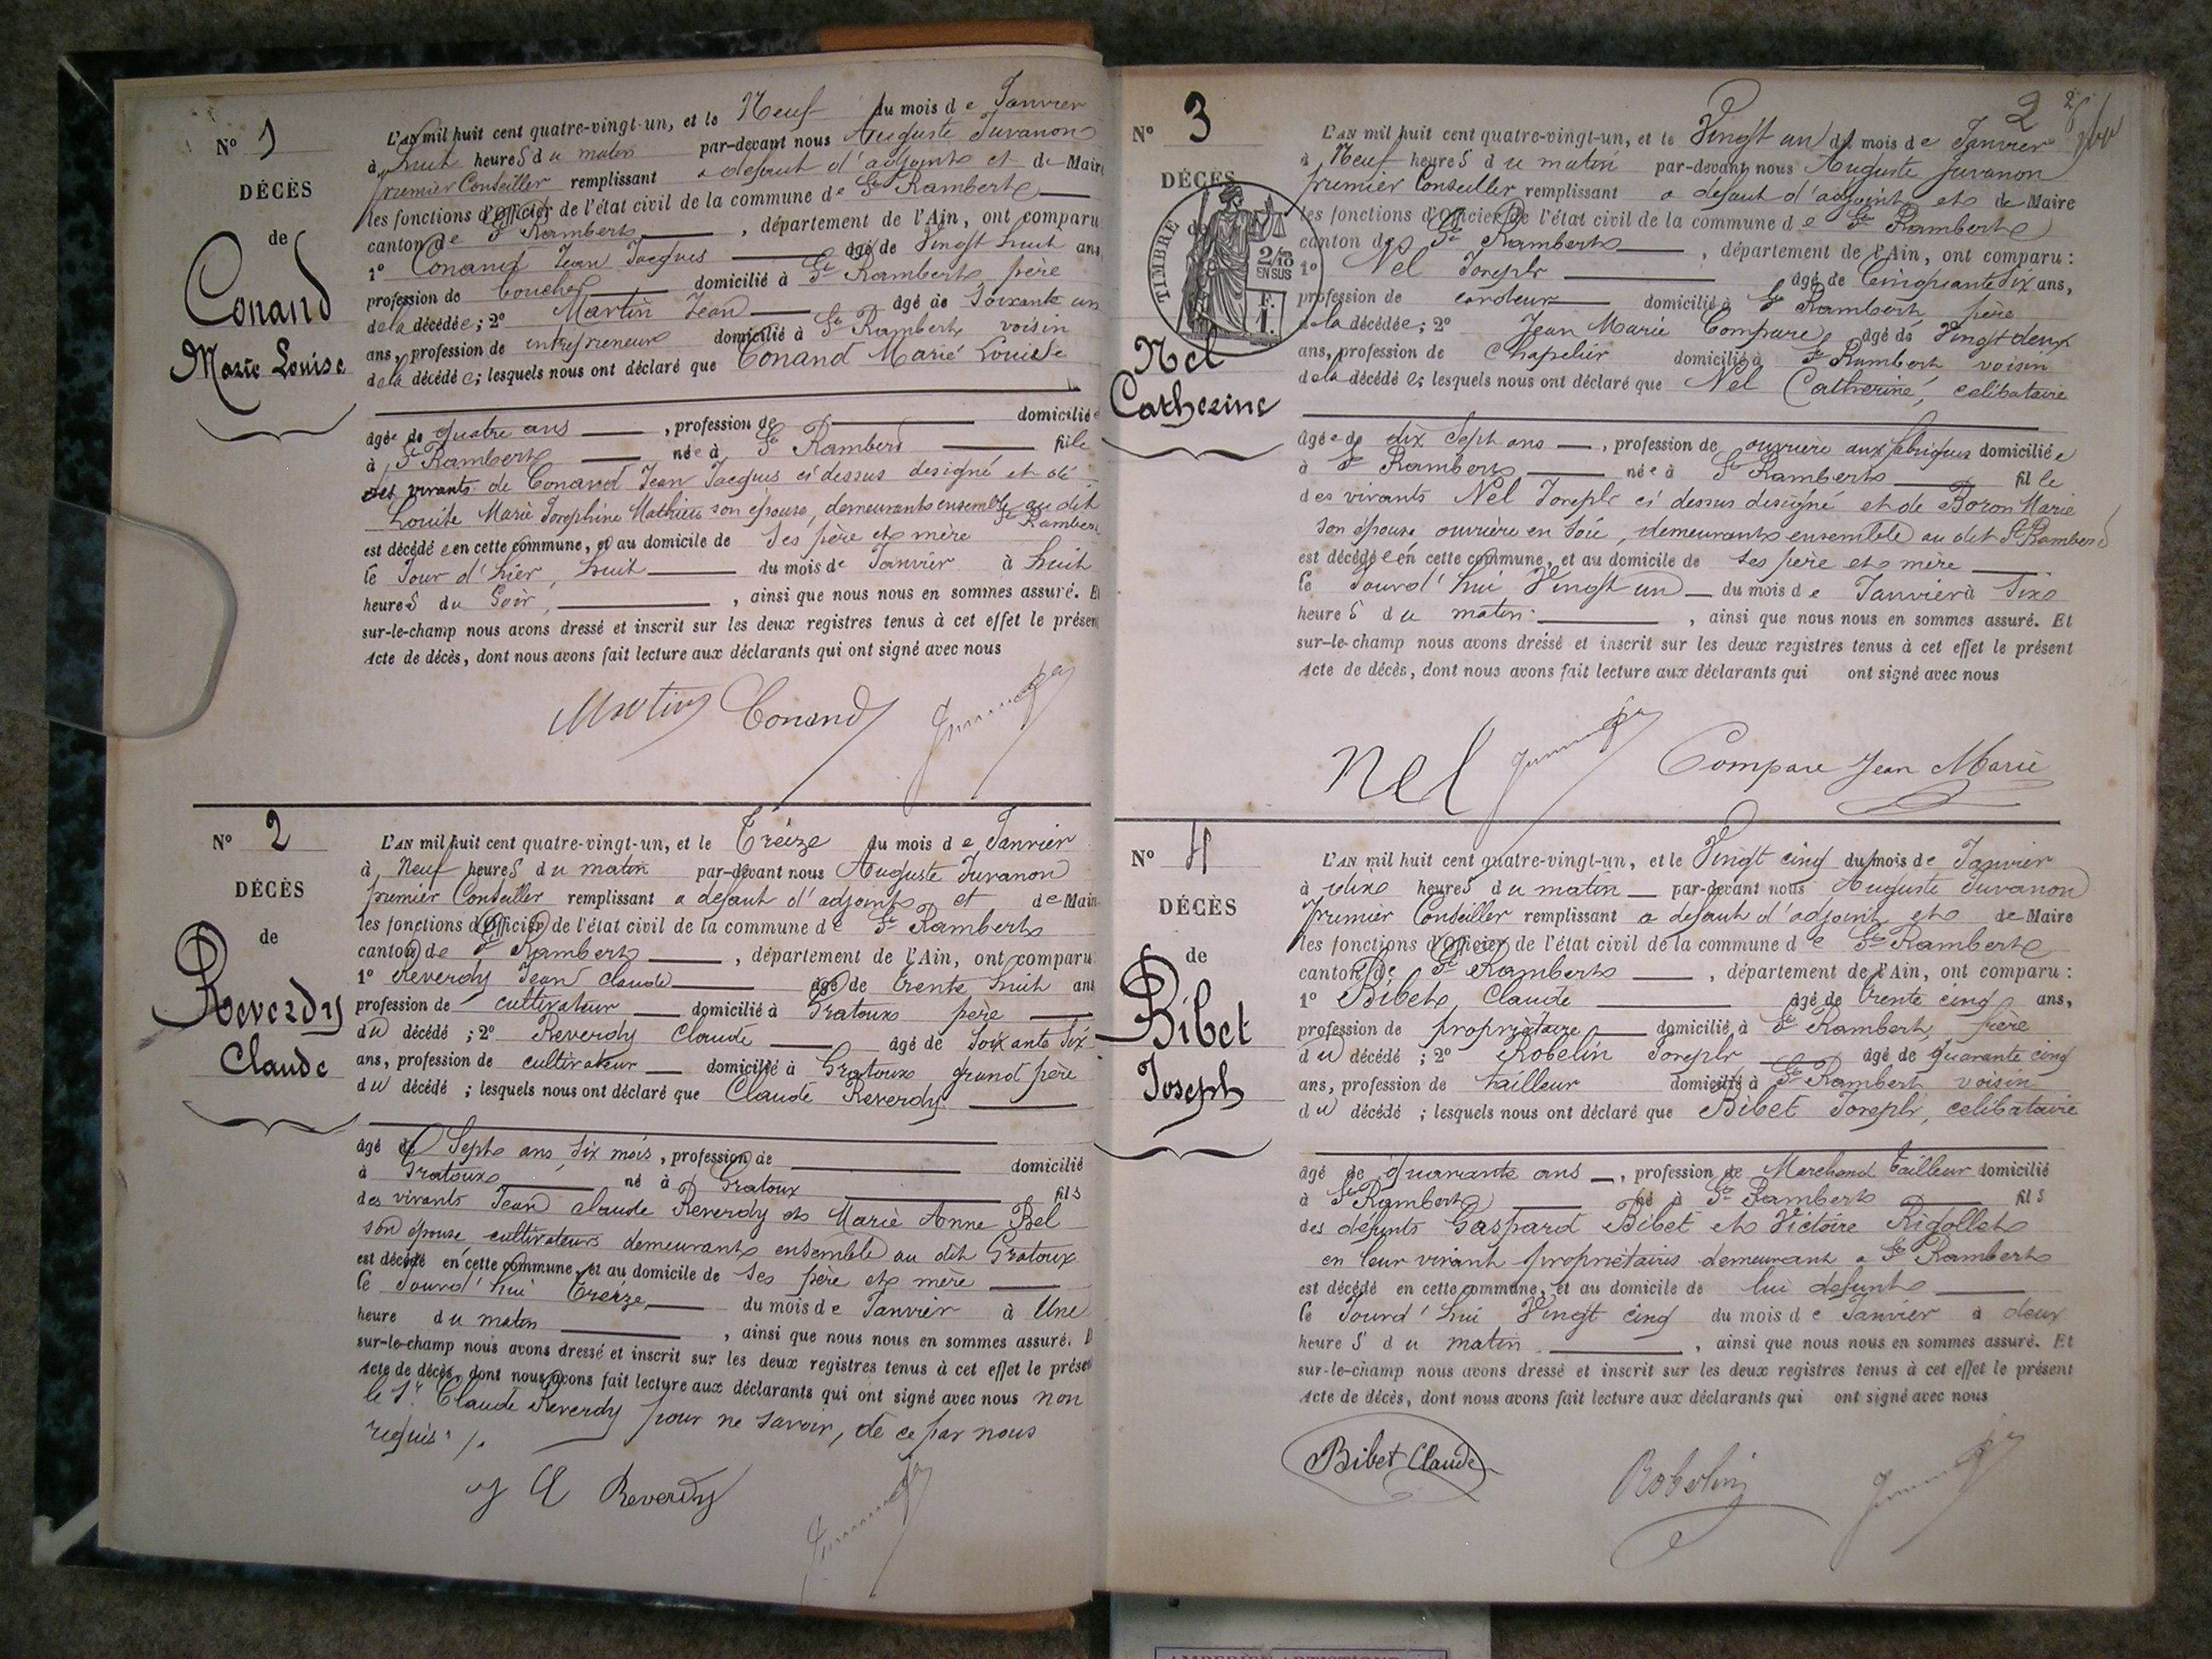 N° 1
DÉCÈS
de
Conand
Marie Louise
L'AN mil huit cent quatre-vingt-un, et le Neuf du mois de Janvier
à huit heures du matin par-devant nous Auguste Juvanon
premier Conseiller remplissant a defaut d'adjoint et de Maire
les fonctions d'Officier de l'état civil de la commune de St Rambert
canton de St Rambert, département de l'Ain, ont comparu
1° Conand Jean Jacques âgé de Vingt huit ans
profession de boucher domicilié à St Rambert père
de la décédée; 2° Martin Jean âgé de Soixante un
ans, profession de entrepreneur domicilié à St Rambert voisin
de la décédée; lesquels nous ont déclaré que Conand Marie Louise
âgée de quatre ans, profession de domiciliée
à St Rambert née à St Rambert fille
des vivants de Conand Jean Jacques ci dessus designé et de
Louise Marie Josephine Mathieu son épouse, demeurant ensemble au dit
St Rambert
est décédée en cette commune, et au domicile de Ses père et mère
le Jour d'hier, huit du mois de Janvier à huit
heures du Soir, ainsi que nous nous en sommes assuré. E
sur-le-champ nous avons dressé et inscrit sur les deux registres tenus à cet effet le présen
Acte de décès, dont nous avons fait lecture aux déclarants qui ont signé avec nous
Martin Conand
N° 2
DÉCÈS
de
Reverdy
Claude
L'AN mil huit cent quatre-vingt-un, et le Treize du mois de Janvier
à Neuf heures du matin par-devant nous Auguste Juvanon
premier Conseiller remplissant a defaut d'adjoint et de Mair
les fonctions d'Officier de l'état civil de la commune de St Rambert
canton de St Rambert, département de l'Ain, ont comparu
1° Reverdy Jean Claude âgé de trente huit ans
profession de cultivateur domicilié à Gratoux père
du décédé; 2° Reverdy Claude âgé de Soixante Six
ans, profession de cultivateur domicilié à Gratoux grand père
du décédé; lesquels nous ont déclaré que Claude Reverdy
âgé de Sept ans Six mois, profession de domicilié
à Gratoux né à Gratoux fils
des vivants Jean Claude Reverdy et Marie Anne Bel
son épouse cultivateurs demeurant ensemble au dit Gratoux
est décédé en cette commune, et au domicile de Ses père et mère
le Jourd'hui treize du mois de Janvier à Une
heure du matin, ainsi que nous nous en sommes assuré. E
sur-le-champ nous avons dressé et inscrit sur les deux registres tenus à cet effet le présen
Acte de décès, dont nous avons fait lecture aux déclarants qui ont signé avec nous non
le Sr Claude Reverdy pour ne savoir, de ce par nous
requis ./.
Reverdy
2
N° 3
DÉCÈS
de
TIMBRE
2/10
EN SUS
F.
1.
Nel
Catherine
L'AN mil huit cent quatre-vingt-un, et le Vingt un du mois de Janvier
à Neuf heures du matin par-devant nous Auguste Juvanon
premier Conseiller remplissant a defaut d'adjoint et de Maire
les fonctions d'Officier de l'état civil de la commune de St Rambert
canton de St Rambert, département de l'Ain, ont comparu:
1° Nel Joseph âgé de Cinquante Six ans,
profession de cardeur domicilié à St Rambert père
de la décédée; 2° Jean Marie Compare âgé de Vingt deux
ans, profession de Chapelier domicilié à St Rambert voisin
de la décédée; lesquels nous ont déclaré que Nel Catherine, celibataire
âgée de dix Sept ans, profession de ouvrière aux fabriques domiciliée
à St Rambert née à St Rambert fille
des vivants Nel Joseph ci dessus designé et de Boron Marie
son épouse ouvrière en Soie, demeurant ensemble au dit St Rambert
est décédée en cette commune, et au domicile de Ses père et mère
le Jourd'hui Vingt un du mois de Janvier à Six
heures du matin, ainsi que nous nous en sommes assuré. Et
sur-le-champ nous avons dressé et inscrit sur les deux registres tenus à cet effet le présent
Acte de décès, dont nous avons fait lecture aux déclarants qui ont signé avec nous
Nel Compare Jean Marie
N° 4
DÉCÈS
de
Bibet
Joseph
L'AN mil huit cent quatre-vingt-un, et le Vingt cinq du mois de Janvier
à dix heures du matin par-devant nous Auguste Juvanon
premier Conseiller remplissant a defaut d'adjoint et de Maire
les fonctions d'Officier de l'état civil de la commune de St Rambert
canton de St Rambert, département de l'Ain, ont comparu:
1° Bibet Claude âgé de trente cinq ans,
profession de propriètaire domicilié à St Rambert, frère
du décédé; 2° Robelin Joseph âgé de quarante cinq
ans, profession de tailleur domicilié à St Rambert voisin
du décédé; lesquels nous ont déclaré que Bibet Joseph, celibataire
âgé de quarante ans, profession de Marchand tailleur domicilié
à St Rambert né à St Rambert fils
des defunts Gaspard Bibet et Victoire Rigollet
en leur vivant propriètaires demeurant a St Rambert
est décédé en cette commune, et au domicile de lui defunt
le Jourd'hui Vingt cinq du mois de Janvier à deux
heures du matin, ainsi que nous nous en sommes assuré. Et
sur-le-champ nous avons dressé et inscrit sur les deux registres tenus à cet effet le présent
Acte de décès, dont nous avons fait lecture aux déclarants qui ont signé avec nous
Bibet Claude Robelin